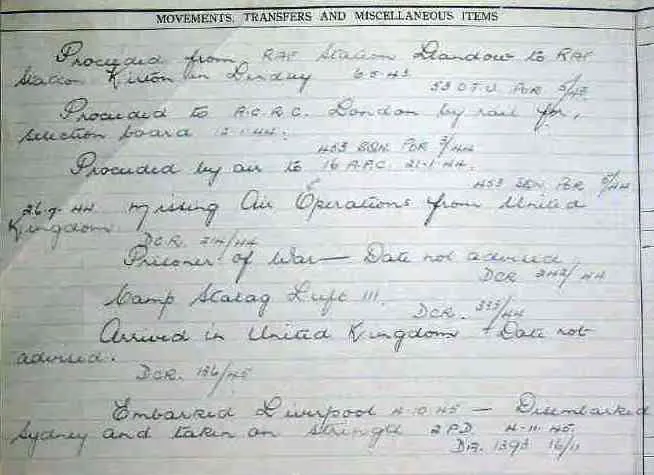 MOVEMENTS, TRANSFERS AND MISCELLANEOUS ITEMS
Proceeded from RAF Station Llandow to RAF
Station Kirton in Lindsey 6·5·43
53 O.T.U. POR 5/43
Proceeded to A.C.R.C. London by rail for
selection board 12·1·44.
453 SQN POR 3/44
Proceeded by air to 16 A.P.C. 21·1·44.
453 SQN POR 5/44
26·7·44 Missing Air Operations from United
Kingdom
DCR. 212/44
Prisoner of War — Date not advised
DCR 242/44
Camp Stalag Luft III.
DCR. 333/44
Arrived in United Kingdom — Date not
advised.
DCR. 136/45
Embarked Liverpool 4·10·45 — Disembarked
Sydney and taken on strength 2 P.D. 4·11·45.
DR. 1393 16/11